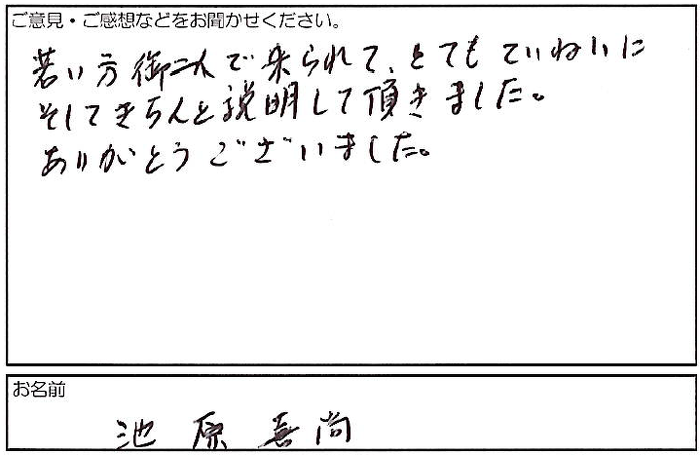 ご意見・ご感想などをお聞かせください。
若い方御二人で来られて、とてもていねいに
そしてきちんと説明して頂きました。
ありがとうございました。
お名前
池原喜尚